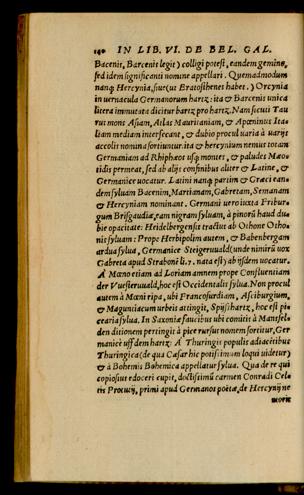 140 IN LIB. VI. DE BEL. GAL.
Bacenit, Barcenit legit) colligi potest, eandem gemino,
sed idem significanti nomine appellari. Quemadmodum
nanq; Hercynia, siue (ut Eratosthenes habet.) Orcynia
in uernacula Germanorum hartz: ita & Barcenis unica
litera immutata dicitur bartz pro hartz. Nam sicuti Tau
rus mons Asiam, Atlas Mauritaniam, & Apeninus Ita
liam mediam intersecant, & dubio procul uaria à uarijs
accolis nomina sortiuntur. ita & hercynium nemus totam
Germaniam ad Rhiphæos usq; montes, & paludes Mæo
tidis permeat, sed ab alijs confinibus aliter & Latine, &
Germanice uocatur. Latini nanq; partim & Græci ean
dem syluam Bacenim, Martianam, Gabretam, Semanam
& Hercyniam nominant. Germani uero iuxta Fribur
gum Brisgaudiæ, eam nigram syluam, à pinorū haud du
bie opacitate: Heidelbergensis tractus ab Othone Otho
nis syluam: Prope Herbipolim autem, & Babenbergam
ardua sylua, Germanice Steigeruuald (unde nimirū uox
Gabreta apud Strabonē li. 7. nata est) ab ijsdem uocatur.
A Mœno etiam ad Loriam amnem prope Confluentiam
der Vuesteruuald, hoc est Occidentalis sylua. Non procul
autem à Mœni ripa, ubi Francofurdiam, Asciburgium,
& Maguntiacum urbeis attingit, Speßhartz, hoc est pi
cearia sylua. In Saxoniæ faucibus ubi comitis à Mansfel
den ditionem pertingit à pice rursus nomen sortitur, Ger
manice uff dem hartz. A Thuringis populis adiacētibus
Thuringica (de qua Cæsar hic potissimum loqui uidetur)
& à Bohemis Bohemica appellatur sylua. Qua de re qui
copiosius edoceri cupit, doctissimū carmen Conradi Cel
tis Protucij, primi apud Germanos poëtæ, de Hercynijne